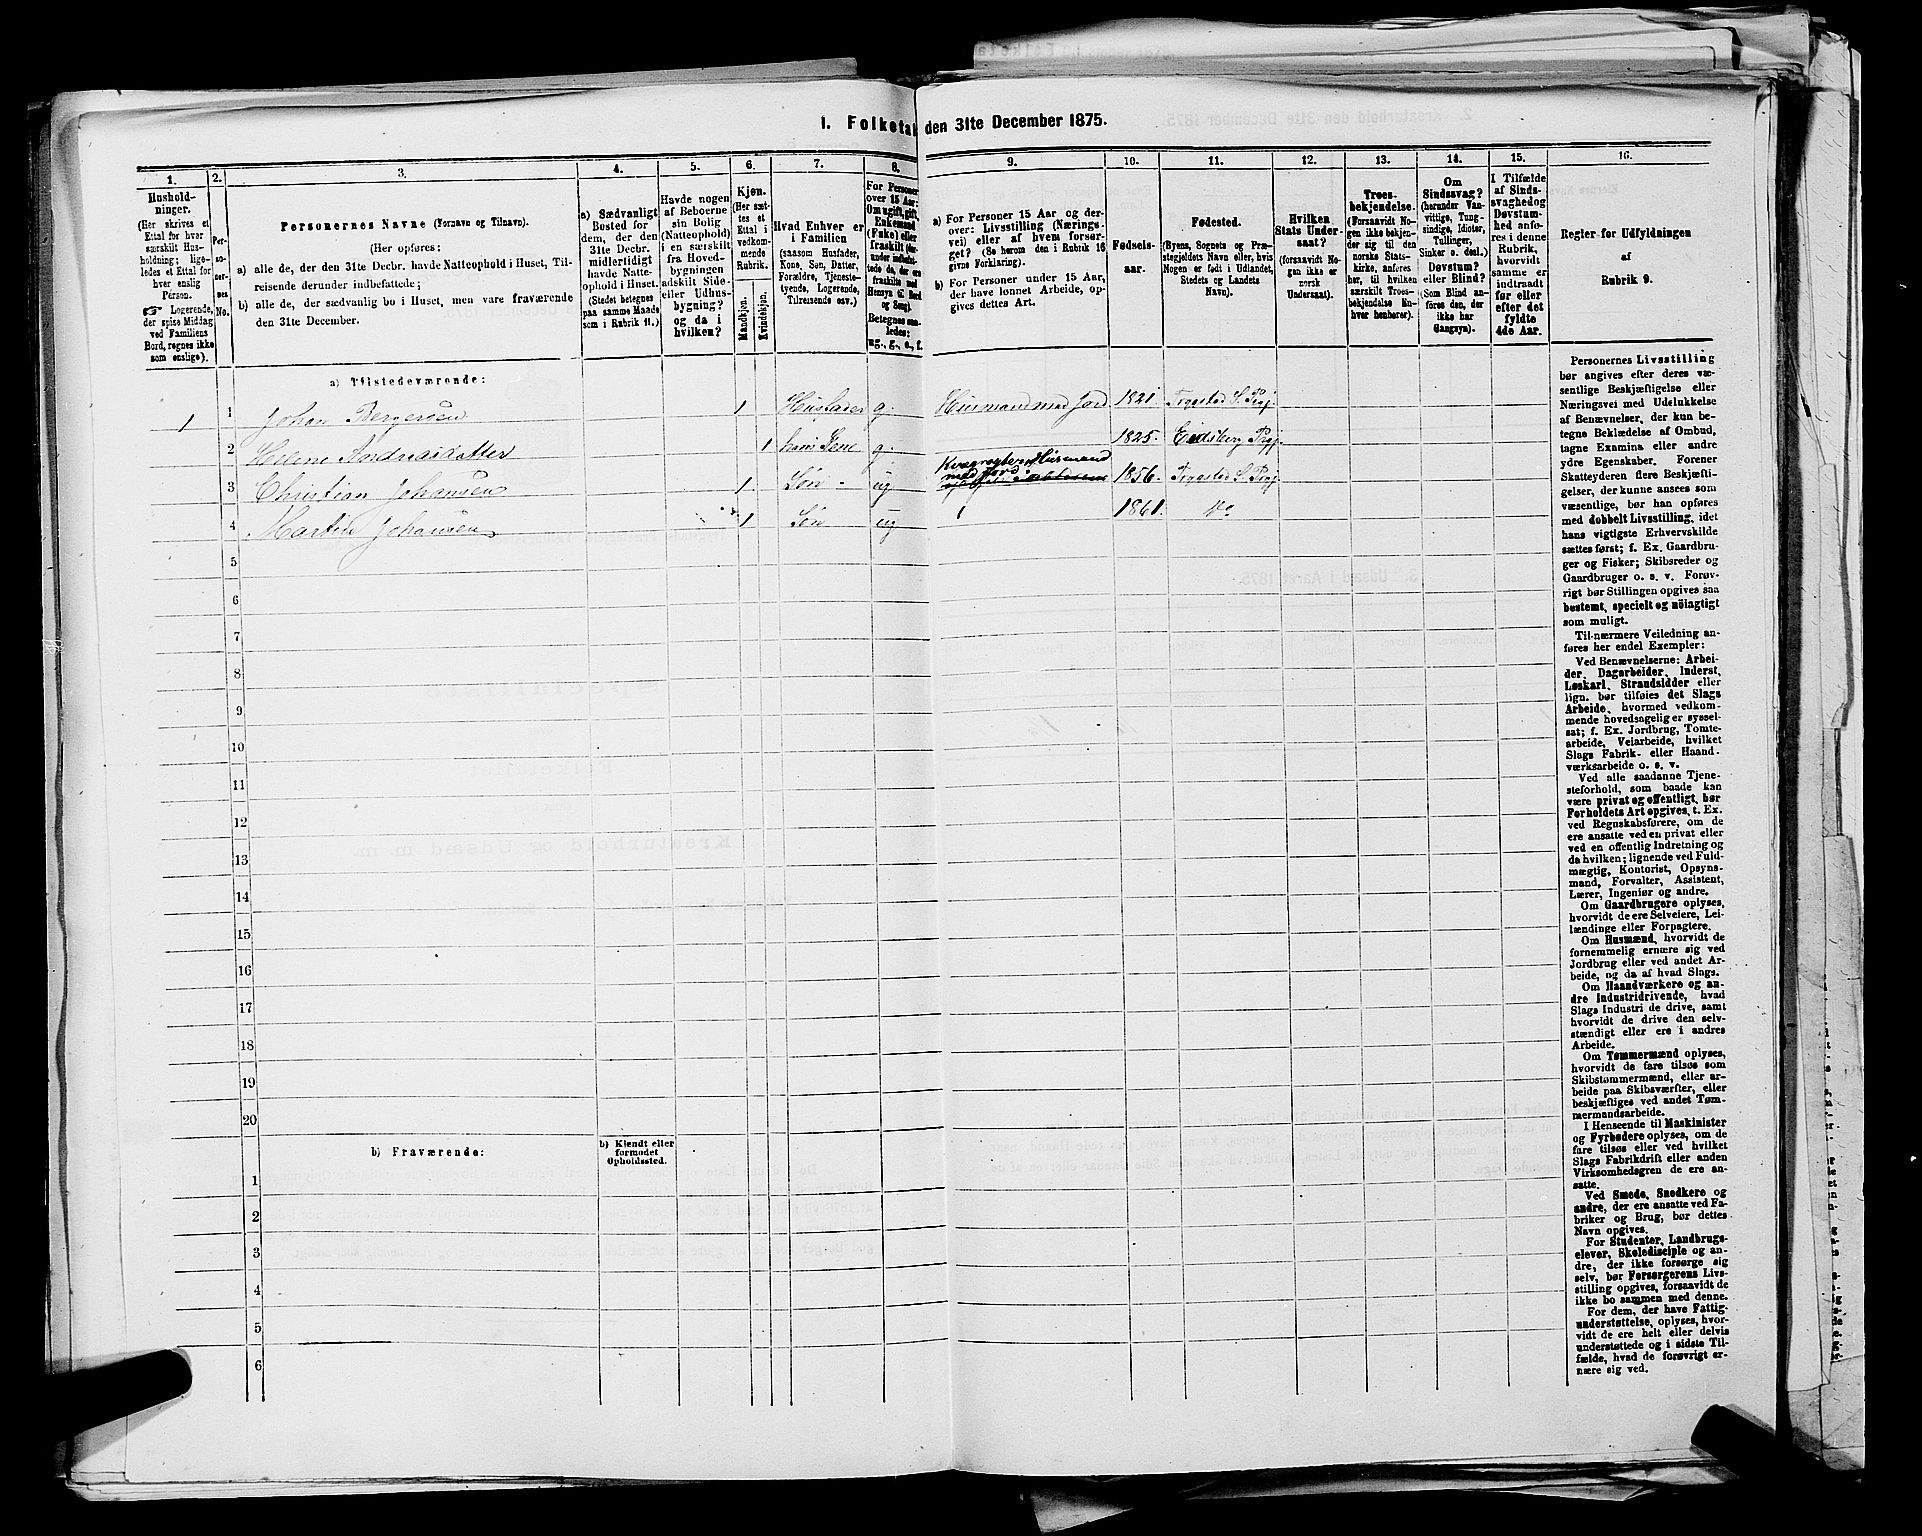 1. Folketal den 31te December 1875.
1. 2. 3. 4. 5. 6. 7. 8. 9. 10. 11. 12. 13. 14. 15. 16.
Husholdninger.
(Her skrives et
Ettal for hver
særskilt Husholdning; ligeledes
et Ettal for
hver enslig
Person.
☞ Logerende,
der spise Middag
ved Familiens
Bord, regnes ikke
som enslige).
Personernes No.
Personernes Navne (Fornavn og Tilnavn).
(Her opføres:
a) alle de, der den 31te Decbr. havde Natteophold i Huset, Tilreisende
derunder indbefattede;
b) alle de, der sædvanlig bo i Huset, men vare fraværende
den 31te December.
a) Sædvanligt
Bosted for
dem, der den
31te Decbr.
midlertidigt
havde Natteophold
i Huset.
(Stedet betegnes
paa samme Maade
som i Rubrik 11.)
Havde nogen
af Beboerne
sin Bolig
(Natteophold)
i en særskilt
fra Hovedbygningen
adskilt Side-
eller Udhusbygning?
og da i
hvilken?
Kjøn.
(Her sættes
et
Ettal i
vedkommende
Rubrik.
Mandkjøn.
Kvindekjøn.
Hvad Enhver er
i Familien
(saasom Husfader,
Kone, Søn, Datter,
Forældre, Tjenestetyende,
Logerende,
Tilreisende osv.)
For Personer
over 15 Aar:
Om ugift, gift,
Enkemand
(Enke) eller
fraskilt
Betegnes saaledes:
ug., g., e., f.
a) For Personer 15 Aar og derover:
Livsstilling (Næringsvei)
eller af hvem forsørget?
(Se herom den i Rubrik 16
givne Forklaring).
b) For Personer under 15 Aar,
der have lønnet Arbeide, opgives
dettes Art.
Fødselsaar.
Fødested.
(Byens, Sognets og Præstegjeldets
Navn eller, hvis
Nogen er født i Udlandet,
Stedets og Landets
Navn).
Hvilken
Stats Undersaat?
(forsaavidt Nogen
ikke er
norsk
Undersaat).
Troesbekjendelse.
(Forsaavidt Nogen
ikke bekjender
sig til den
norske Statskirke,
anføres
her, til hvilken
særskilt Troesbekjendelse
Enhver
henhører).
Om
Sindssvag?
(herunder Vanvittige,
Tungsindige,
Idioter,
Tullinger,
Sinker o. desl.)
Døvstum?
eller Blind?
(Som Blind anføres
den, der
ikke har
Gangsyn).
I Tilfælde
af Sindssvaghed
og
Døvstumhed
anføres
i denne
Rubrik,
hvorvidt
samme er
indtraadt
før eller
efter det
fyldte
4de Aar.
Regler for Udfyldningen
af
Rubrik 9.
a) Tilstedeværende:
1 1 Johan Bergersen 1 Husfader g. Husmand med Jord 1821 Trygstad S. Prgj.
2 Helene Andreasdatter 1 hans Kone g. 1825. Eidsberg Prgj.
3 Christian Johansen 1 Søn ug Husmand
med Jord 1856. Trygstad S. Prgj.
4 Martin Johansen 1 Søn ug 1861. Do
5
6
7
8
9
10
11
12
13
14
15
16
17
18
19
20
b) Fraværende:
b) Kjendt eller
formodet
Opholdssted.
1
2
3
4
5
6
Personernes Livsstilling
bør angives efter deres væsentlige
Beskjæftigelse eller
Næringsvei med Udelukkelse
af Benævnelser, der kun betegne
Beklædelse af Ombud,
tagne Examina eller andre
ydre Egenskaber. Forener
Skatteyderen flere Beskjæftigelser,
der kunne ansees som
væsentlige, bør han opføres
med dobbelt Livsstilling, idet
hans vigtigste Erhvervskilde
sættes først; f. Ex. Gaardbruger
og Fisker; Skibsreder og
Gaardbruger o. s. v. Forøvrigt
bør Stillingen opgives saa
bestemt, specielt og nöiagtigt
som muligt.
Til nærmere Veiledning anføres
her endel Exempler:
Ved Benævnelserne: Arbeider,
Dagarbeider, Inderst,
Løskarl, Strandsidder eller
lign. bør tilføies det Slags
Arbeide, hvormed vedkommende
hovedsagelig er sysselsat;
f. Ex. Jordbrug, Tomtearbeide,
Veiarbeide, hvilket
Slags Fabrik- eller Haandværksarbeide
o. s. v.
Ved alle saadanne Tjenesteforhold,
som baade kan
være privat og offentligt, bør
Forholdets Art opgives, t. Ex.
ved Regnskabsførere, om de
ere ansatte ved en privat eller
ved en offentlig Indretning og
da hvilken; lignende ved Fuldmægtig,
Kontorist, Opsynsmand,
Forvalter, Assistent,
Lærer, Ingeniør og andre.
Om Gaardbrugere oplyses,
hvorvidt de ere Selveiere, Leilændinge
eller Forpagtere.
Om Husmænd, hvorvidt de
fornemmelig ernære sig ved
Jordbrug eller ved andet Arbeide,
og da af hvad Slags.
Om Haandværkere og andre
Industridrivende, hvad
Slags Industri de drive, samt
hvorvidt de drive den selvstændigt
eller ere i andres
Arbeide.
Om Tømmermænd oplyses,
hvorvidt de fare tilsøs som
Skibstømmermænd, eller arbeide
paa Skibsværfter, eller
beskjæftiges ved andet Tømmermandsarbeide.
I Henseende til Maskinister
og Fyrbødere oplyses, om de
fare tilsøs eller ved hvilket
Slags Fabrikdrift eller anden
Virksomhedsgren de ere ansatte.
Ved Smede, Snedkere og
andre, der ere ansatte ved Fabriker
og Brug, bør dettes
Navn opgives.
For Studenter, Landbrugselever,
Skoledisciple og andre,
der ikke forsørge sig
selv, bør Forsørgerens Livsstilling
opgives, forsaavidt de
ikke bo sammen med denne.
For dem, der have Fattigunderstøttelse,
oplyses, hvorvidt
de ere helt eller delvis
understøttede og i sidste Tilfælde,
hvad de forøvrigt ernære
sig ved.